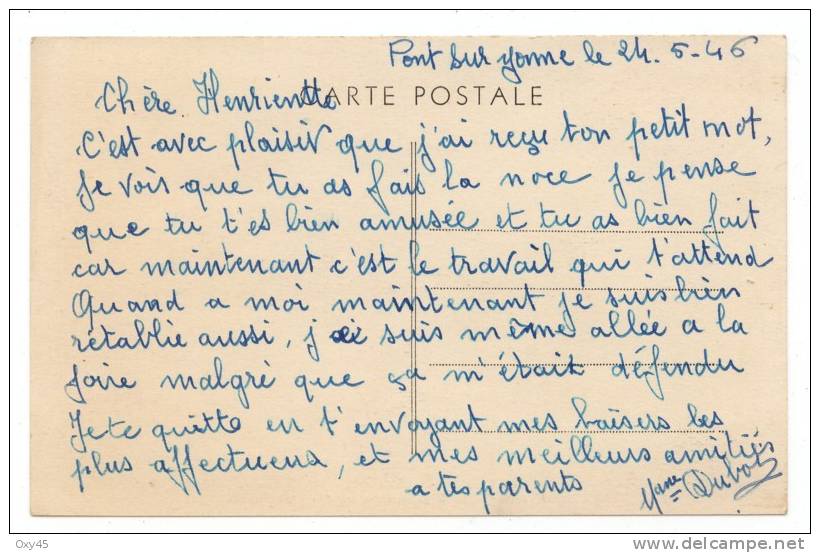 Pont sur yonne le 24. 5-46
Chère Henriette
CARTE POSTALE
C'est avec plaisir que j'ai reçu ton petit mot,
je vois que tu as fais la noce je pense
que tu t'es bien amusée et tu as bien fait
car maintenant c'est le travail qui t'attend
Quand a moi maintenant je suis bien
rétablie aussi, je suis même allée a la
foire malgré que ça m'était défendu
Je te quitte en t'envoyant mes baisers les
plus affectueux, et mes meilleurs amitiés
a tes parents
Dubois
Oxy45
http://www.delcampe.net